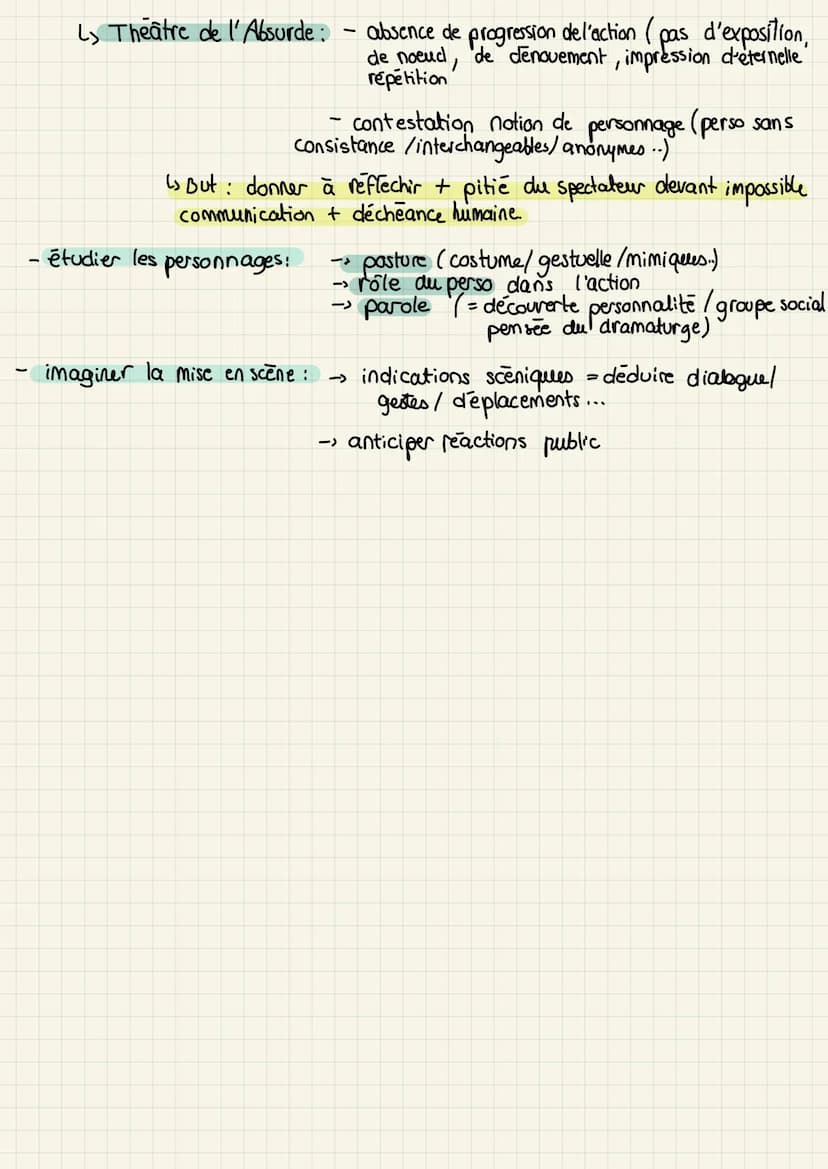 ↳ Théâtre de l'Absurde : - absence de progression de l'action ( pas d'exposition,
de noeud, de dénouement, impression d'éternelle
répétition
- contestation notion de personnage (perso sans
consistance /interchangeables/ anonymes ..)
↳ But : donner à réflechir + pitié du spectateur devant impossible
communication + déchéance humaine
- étudier les personnages: -> posture ( costume/ gestuelle /mimiques..)
-> rôle du perso dans l'action
-> parole ( = découverte personnalité / groupe social
pensée du dramaturge)
- imaginer la mise en scène : -> indications scéniques = déduire dialogue/
gestes / déplacements ...
-> anticiper réactions public